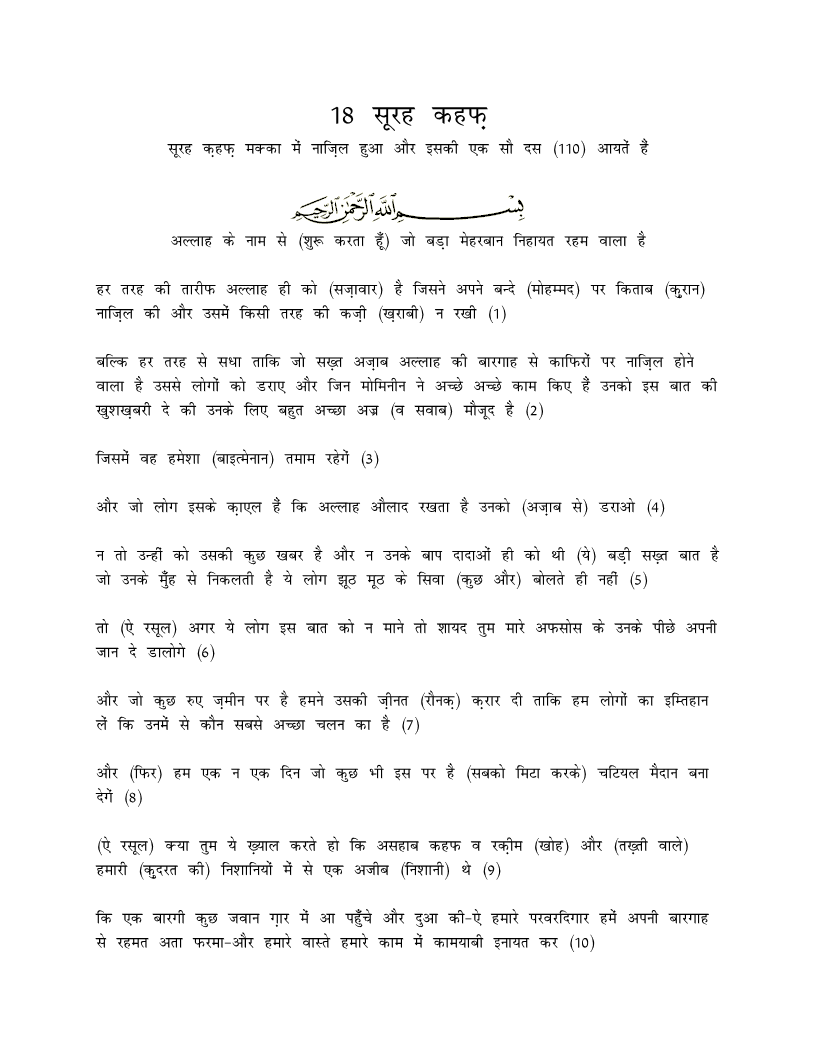 18 सूरह कहफ़
सूरह क़हफ़ मक्का में नाज़िल हुआ और इसकी एक सौ दस (110) आयतें है
بِسْمِ اللَّهِ الرَّحْمَٰنِ الرَّحِيمِ
अल्लाह के नाम से (शुरू करता हूँ) जो बड़ा मेहरबान निहायत रहम वाला है
हर तरह की तारीफ अल्लाह ही को (सज़ावार) है जिसने अपने बन्दे (मोहम्मद) पर किताब (कुरान)
नाज़िल की और उसमें किसी तरह की कज़ी (ख़राबी) न रखी (1)
बल्कि हर तरह से सधा ताकि जो सख़्त अज़ाब अल्लाह की बारगाह से काफिरों पर नाज़िल होने
वाला है उससे लोगों को डराए और जिन मोमिनीन ने अच्छे अच्छे काम किए हैं उनको इस बात की
खुशख़बरी दे की उनके लिए बहुत अच्छा अज्र (व सवाब) मौजूद है (2)
जिसमें वह हमेशा (बाइत्मेनान) तमाम रहेगें (3)
और जो लोग इसके क़ाएल हैं कि अल्लाह औलाद रखता है उनको (अज़ाब से) डराओ (4)
न तो उन्हीं को उसकी कुछ खबर है और न उनके बाप दादाओं ही को थी (ये) बड़ी सख़्त बात है
जो उनके मुँह से निकलती है ये लोग झूठ मूठ के सिवा (कुछ और) बोलते ही नहीं (5)
तो (ऐ रसूल) अगर ये लोग इस बात को न माने तो शायद तुम मारे अफसोस के उनके पीछे अपनी
जान दे डालोगे (6)
और जो कुछ रुए ज़मीन पर है हमने उसकी ज़ीनत (रौनक़) क़रार दी ताकि हम लोगों का इम्तिहान
लें कि उनमें से कौन सबसे अच्छा चलन का है (7)
और (फिर) हम एक न एक दिन जो कुछ भी इस पर है (सबको मिटा करके) चटियल मैदान बना
देगें (8)
(ऐ रसूल) क्या तुम ये ख़्याल करते हो कि असहाब कहफ व रक़ीम (खोह) और (तख़्ती वाले)
हमारी (क़ुदरत की) निशानियों में से एक अजीब (निशानी) थे (9)
कि एक बारगी कुछ जवान ग़ार में आ पहुँचे और दुआ की-ऐ हमारे परवरदिगार हमें अपनी बारगाह
से रहमत अता फरमा-और हमारे वास्ते हमारे काम में कामयाबी इनायत कर (10)